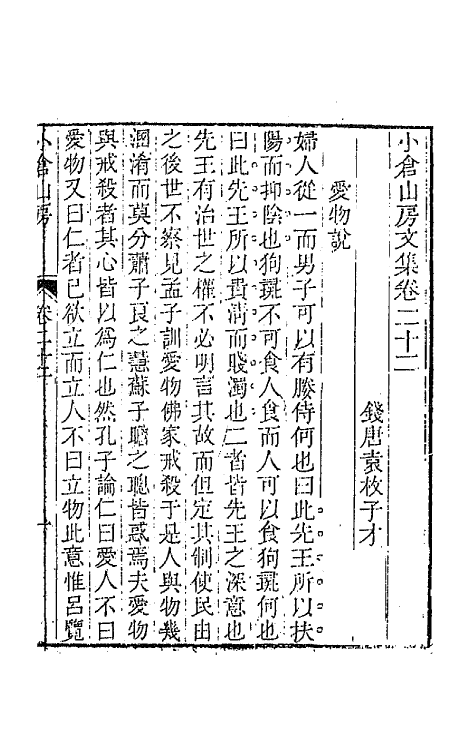 小倉山房文集卷二十二
錢唐袁枚子才
愛物說
婦人從一而男子可以有媵侍何也曰此先王所以扶
陽而抑陰也狗彘不可食人食而人可以食狗彘何也
曰此先王所以貴淸而賤濁也二者皆先王之深意也
先王有治世之權不必明言其故而但定其制使民由
之後世不察見孟子訓愛物佛家戒殺于是人與物幾
溷淆而莫分蕭子良之慧蘇子瞻之聰皆惑焉夫愛物
與戒殺者其心皆以爲仁也然孔子論仁曰愛人不曰
愛物又曰仁者已欲立而立人不曰立物此意惟呂覽
小倉山房
卷二十二
一